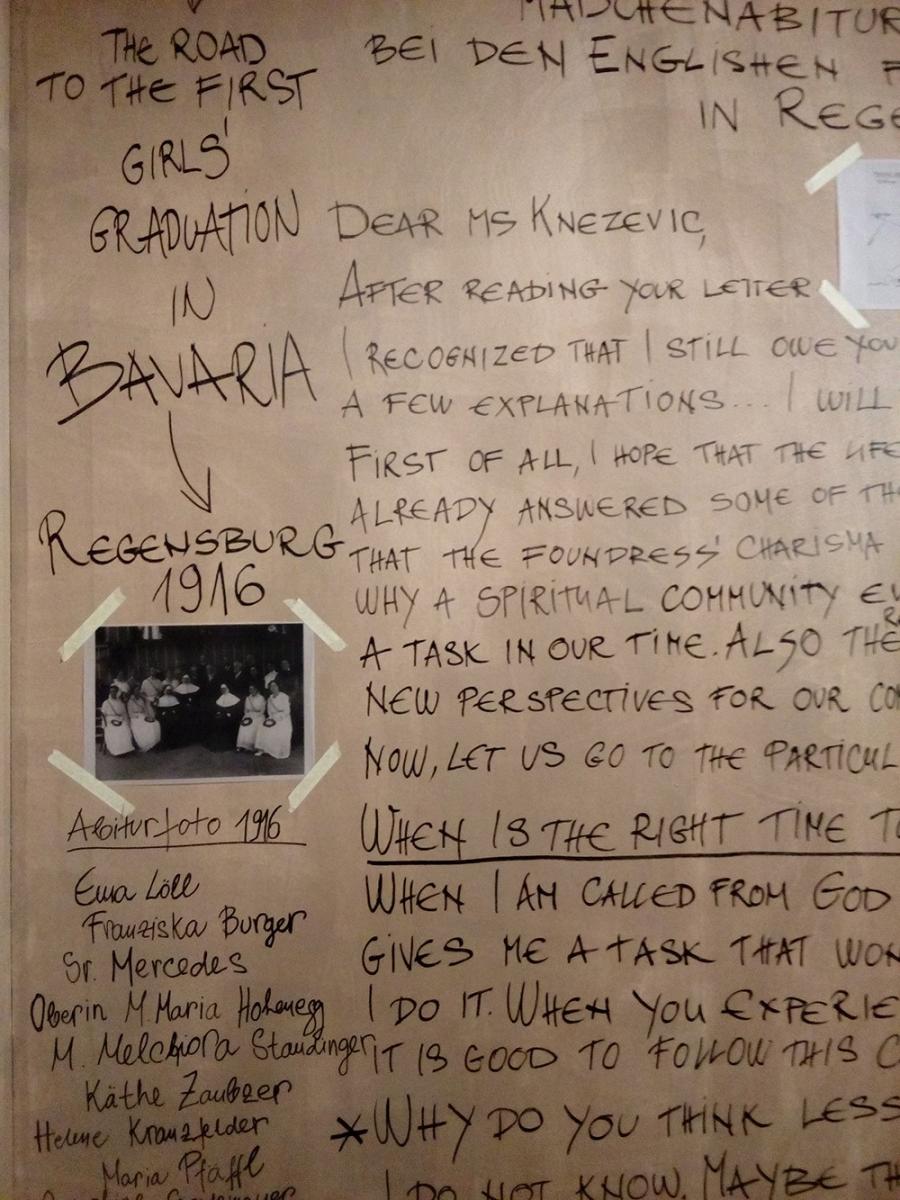 THE ROAD
TO THE FIRST
GIRLS'
GRADUATION
IN
BAVARIA
REGENSBURG
1916
Abiturfoto 1916
Franziska Burger
Sr. Mercedes
Oberin M. Maria Hohenegg
M. Melchiora Staudinger
Käthe
Helene Kranzfelder
Maria Pfäffl
MÄDCHENABITUR
BEI DEN ENGLISHEN F
IN REGE
DEAR MS KNEZEVIC,
AFTER READING YOUR LETTER
I RECOGNIZED THAT I STILL OWE YOU
A FEW EXPLANATIONS... I WILL
FIRST OF ALL, I HOPE THAT THE LIFE
ALREADY ANSWERED SOME OF TH
THAT THE FOUNDRESS' CHARISMA
WHY A SPIRITUAL COMMUNITY EV
A TASK IN OUR TIME. ALSO THE
NEW PERSPECTIVES FOR OUR CO
NOW, LET US GO TO THE PARTICUL
WHEN IS THE RIGHT TIME TO
WHEN I AM CALLED FROM GOD
GIVES ME A TASK THAT WON
I DO IT. WHEN YOU EXPERIE
IT IS GOOD TO FOLLOW THIS C
*WHY DO YOU THINK LESS
I DO NOT KNOW. MAYBE TH